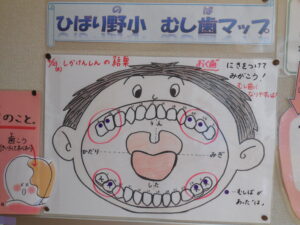 ひばり野小 むし歯マップ
の ば
しかけんしんの結果
おく歯
にきをつけて
みがこう!
むし歯に
なりやすい!
うえ
ひだり
みぎ
した
●…むしばが
あった"は"
のこと。
歯こう